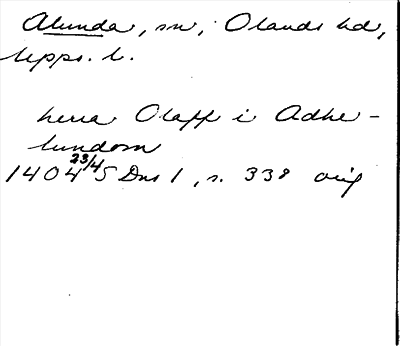 Alunda, sn, Olands hd,
Upps. l.
herra Olaff i Adhe-
lundom
1404 23/4 S Dns 1, s. 338 orig